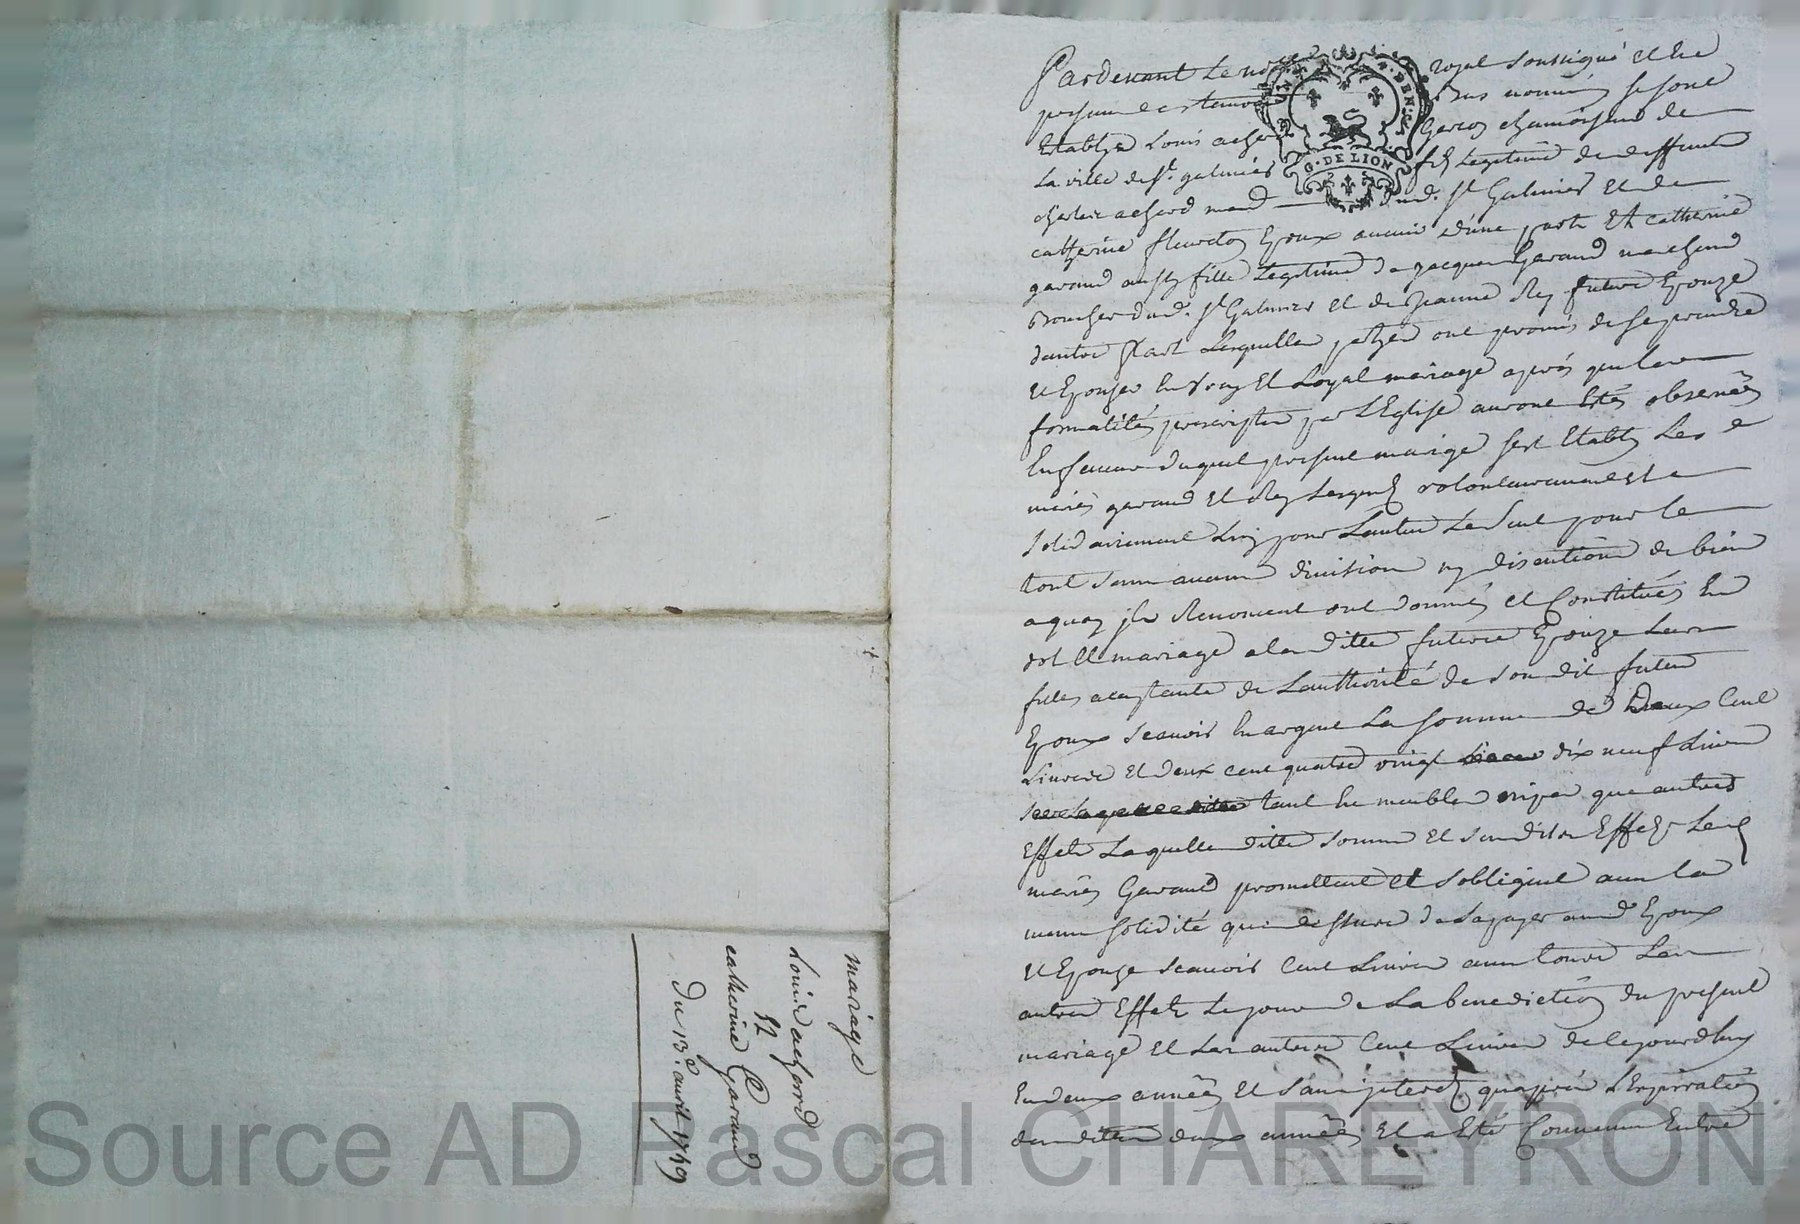 mariage
Louis achard
et
catherine Garand
du 13e. avril 1749
G. DE LION
Pardevant le royal soussigné et En
presence des temoins Bas nommés se sont
Etablys Louis achard Garcon chamoiseur de
La ville de st. galmier fils Legitime de deffunt
charles achard mard dud. st Galmier et de
catherine fleurdo Epoux avenir d'une part Et catherine
garand aussy fille Legitime de jacques Garand marchand
Boucher dud. st Galmier et de jeanne Rey future Epouze
dautre Part Lesquelles partyes ont promis de se prendre
et Epouser En vray Et Loyal mariage après que les
formalités prescriptes par L'Eglise auront Estés observées
En faveur duquel present mariage sest Etably Les
mariés garand et Rey Lesquels volontairement et
solidairement L'un pour L'autre Le seul pour le
tout sans aucune division ny discution de biens
a quoy ils Renoncent ont donnés et Constitués En
dot Et mariage a la ditte future Epouze Leur
fille acceptante de Lauthorité de son dit futur
Epoux scavoir En argent La somme de Deux Cent
Livres et deux cent quatre vingt dix neuf Livres
tant En meubles nipes que autres
Effets Laquelle ditte somme Et susdits Effets Les
mariés Garand promettent et sobligent avec la
meme solidité que dessus de La payer aud Epoux
et Epouze scavoir Cent Livres avec tous Les
autres Effets Le jour de La benediction du present
mariage Et Les autres Cent Livres de Cejourdhuy
En deux années Et sans interets qu'après L'Expiration
des dittes deux années Et a Eté Convenu Entre
Source AD Pascal CHAREYRON